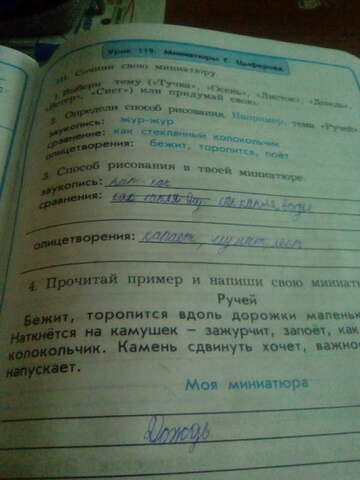 Урок 119. Миниатюры Г. Цыферова.
III. Сочини свою миниатюру.
1. Выбери тему («Тучка», «Осень», «Листок», «Дождь»,
«Ветер», «Снег») или придумай свою.
2. Определи способ рисования. Например, тема «Ручей»
звукопись: жур-жур
сравнение: как стеклянный колокольчик
олицетворения: бежит, торопится, поёт
3. Способ рисования в твоей миниатюре.
звукопись: кап-кап
сравнения: как
олицетворения:
4. Прочитай пример и напиши свою миниат
Ручей
Бежит, торопится вдоль дорожки маленьк
Наткнётся на камушек – зажурчит, запоёт, как
колокольчик. Камень сдвинуть хочет, важно
напускает.
Моя миниатюра
Дождь